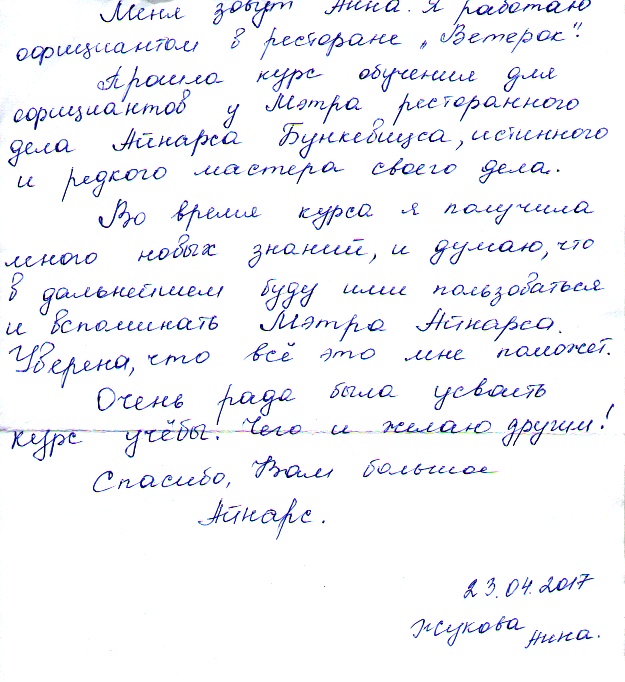 Меня зовут Анна. Я работаю
официантом в ресторане „Ветерок".
Прошла курс обучения для
официантов у Мэтра ресторанного
дела Айнарса Бункевицса, истинного
и редкого мастера своего дела.
Во время курса я получила
много новых знаний, и думаю, что
в дальнейшем буду ими пользоваться
и вспоминать Мэтра Айнарса.
Уверена, что всё это мне поможет.
Очень рада была усваить
курс учёбы! Чего и желаю другим!
Спасибо, Вам большое
Айнарс.
23.04.2017
Жукова Анна.